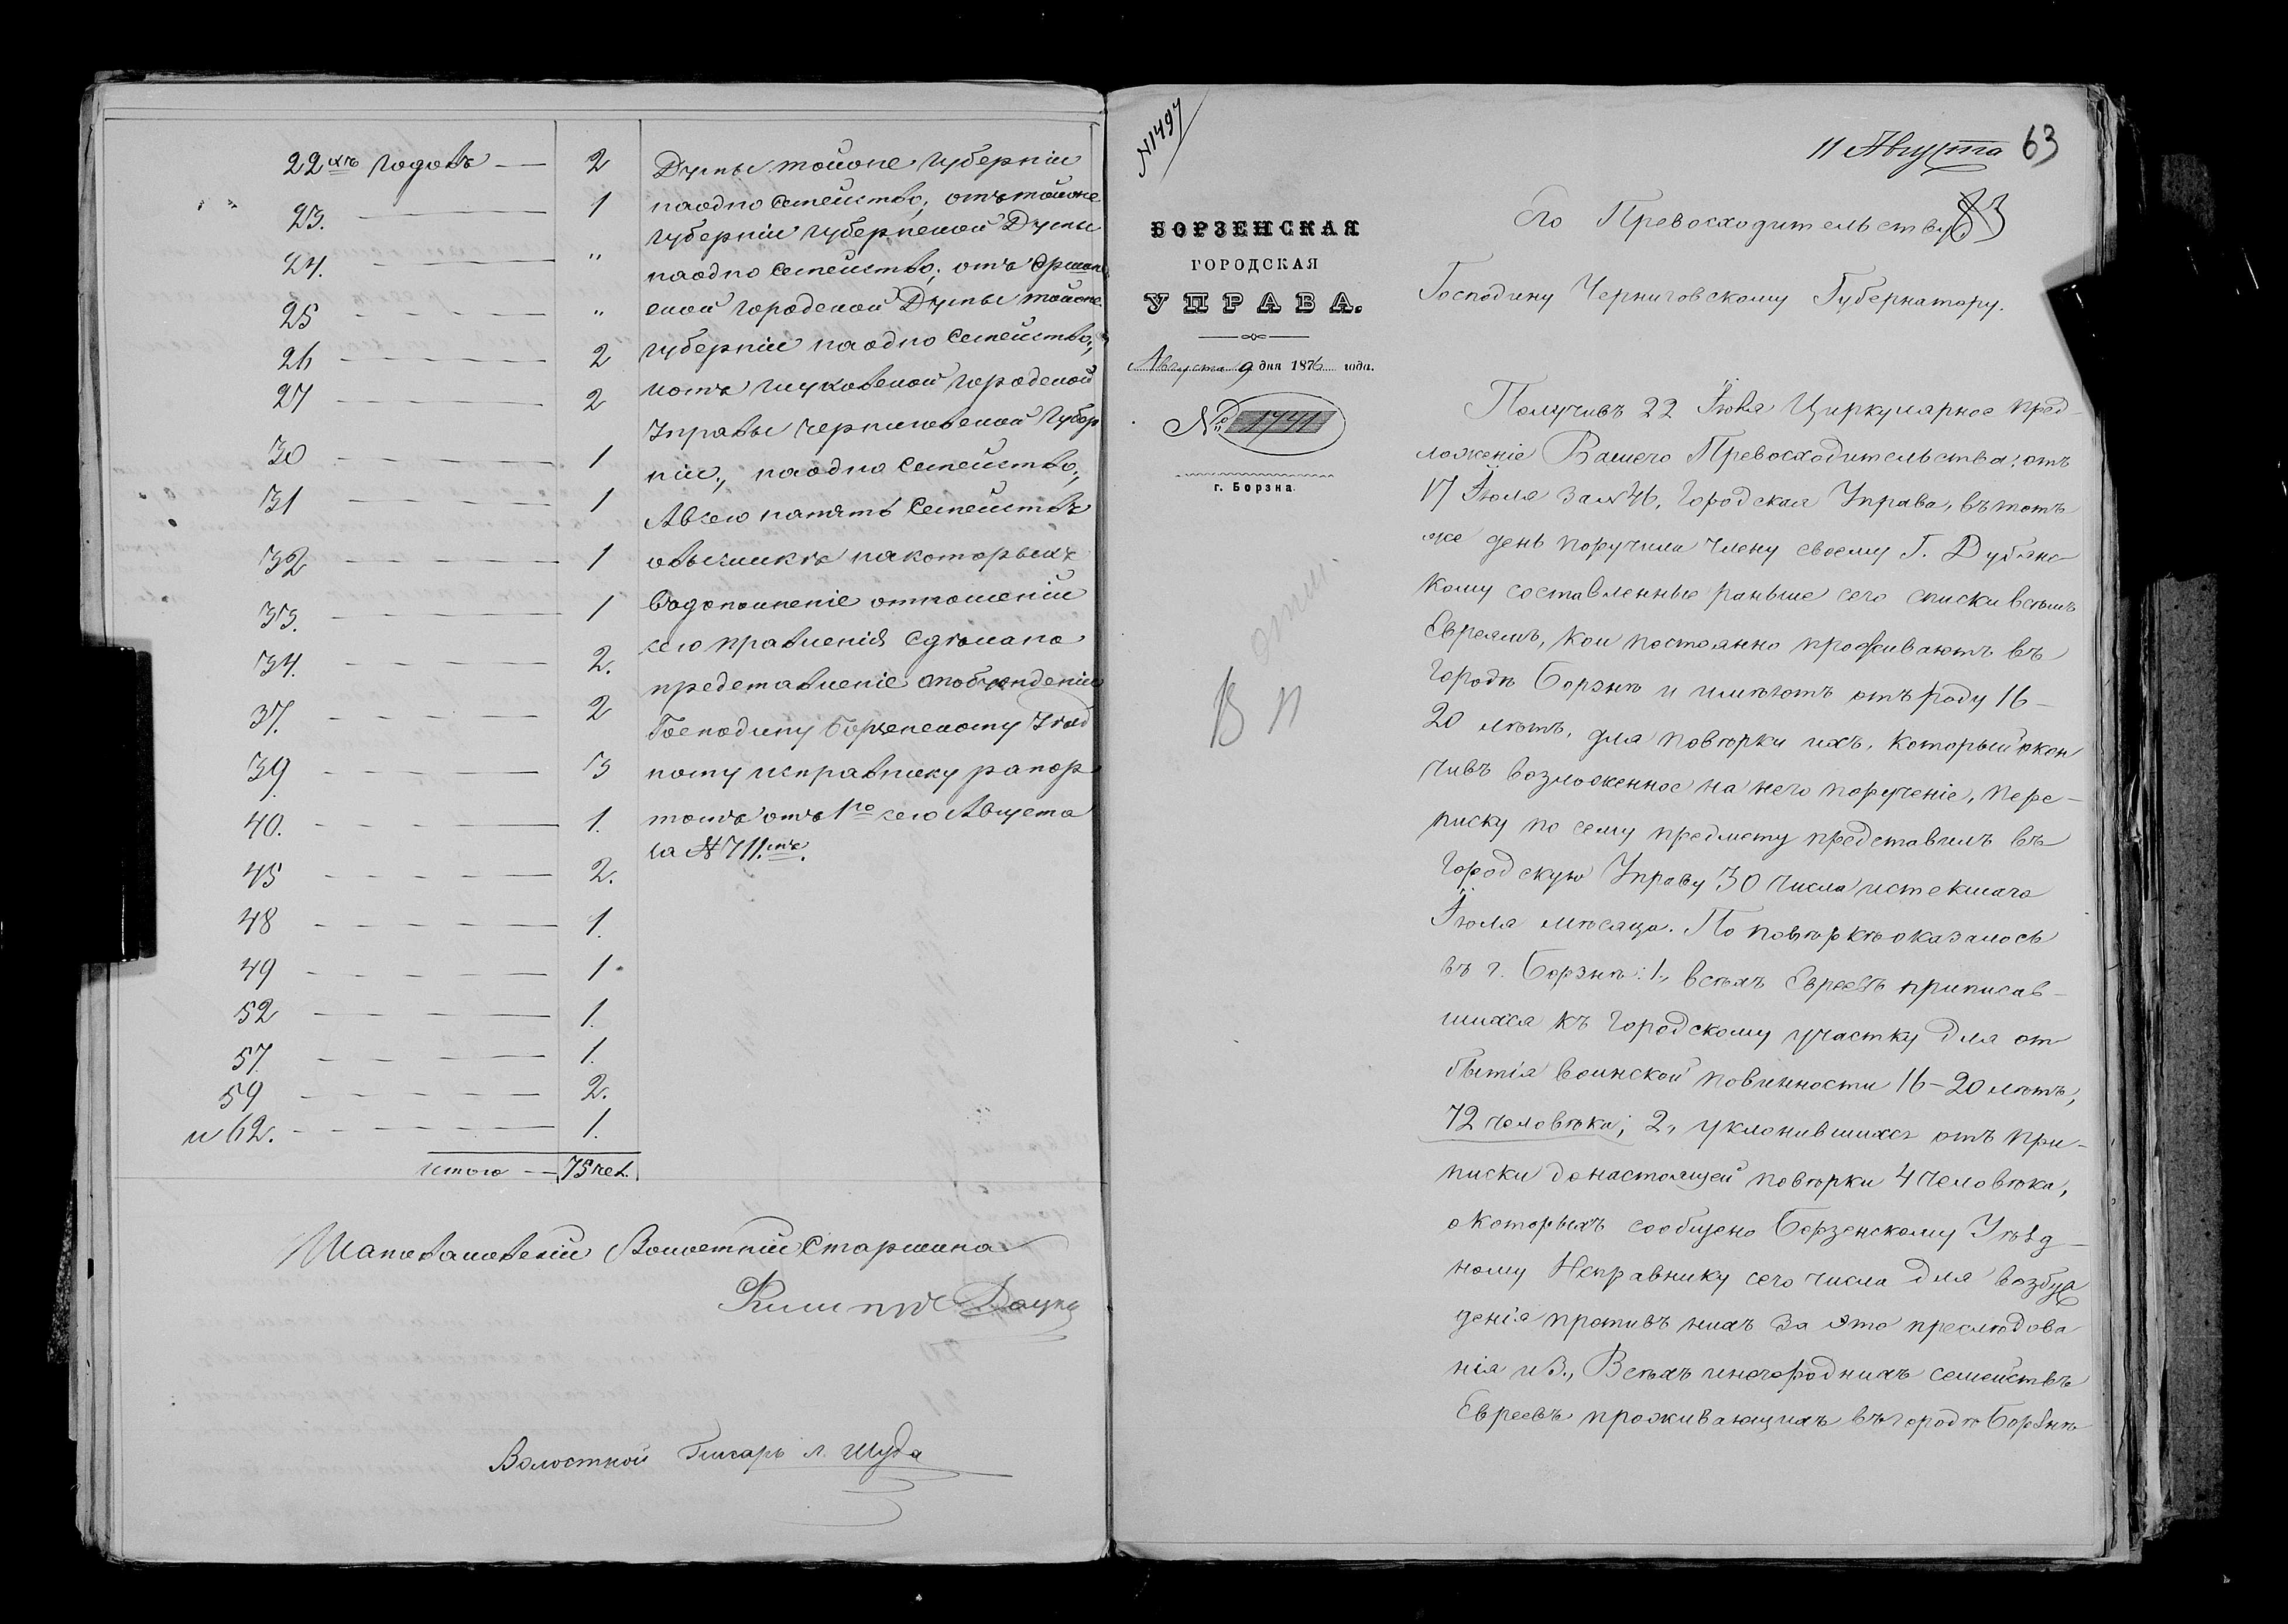 22хъ годовъ — 2
23. — 1
24. — "
25 — "
26 — 2
27 — 2
30 — 1
31 — 1
32 — 1
33. — 1
34. — 2.
37. — 2
39. — 3
40. — 1.
45 — 2.
48 — 1.
49 — 1.
52 — 1.
57. — 1.
59 — 2.
и 62. — 1.
итого — 75 чел.
Думы тойоне губерніи
наодно семейство, отъ тойоне
губерніи губернской Думы
наодно семейство; отъ
ской городской Думы тойоне
губерніи наодно семейство;
иотъ глуховской городской
Управы черниговской губер
ніи, наодно семейство;
Авсего напять семействъ
накоторыхъ
Водополненіе отношеніи
сего правленія сдѣлано
представленіе
Господину Борзенскому Уѣзд
ному исправнику рапор
томъ отъ 1го сего Августа
за № 711.мъ.
Шаповаловскій Волостній Старшина
Филипъ
Волостной Писарь Л. Шуба
№1497
11 Августа 63
83
БОРЗЕНСКАЯ
ГОРОДСКАЯ
УПРАВА.
Августа 9 дня 1876 года.
№ 1741
г. Борзна
В П
Его Превосходительству
Господину Черниговскому Губернатору.
Получивъ 22 Іюля Циркулярное пред-
ложеніе Вашего Превосходительства, отъ
17 Іюля за № 46, Городская Управа, въ тотъ
же день поручила члену своему Г. Дубянс
кому составленные раньше сего списки всѣмъ
Евреямъ, кои постоянно проживаютъ въ
городѣ Борзнѣ и имѣютъ отъ роду 16-
20 лѣтъ, для повѣрки ихъ, который окон
чивъ возложенное на него порученіе, пере-
писку по сему предмету представилъ въ
Городскую Управу 30 числа истекшаго
Іюля мѣсяца. По повѣркѣ оказалось
въ г. Борзнѣ: 1., всѣхъ Евреевъ приписав-
шихся къ городскому участку для от
бытія воинской повинности 16-20 лѣтъ,
72 человѣка; 2., уклонившихся отъ при-
писки до настоящей повѣрки 4 человѣка,
о которыхъ сообщено Борзенскому Уѣзд-
ному Исправнику сего числа для возбуж
денія противъ нихъ за это преслѣдова
нія и 3., Всѣхъ иногородныхъ семействъ
Евреевъ проживающихъ въ городѣ Борзнѣ